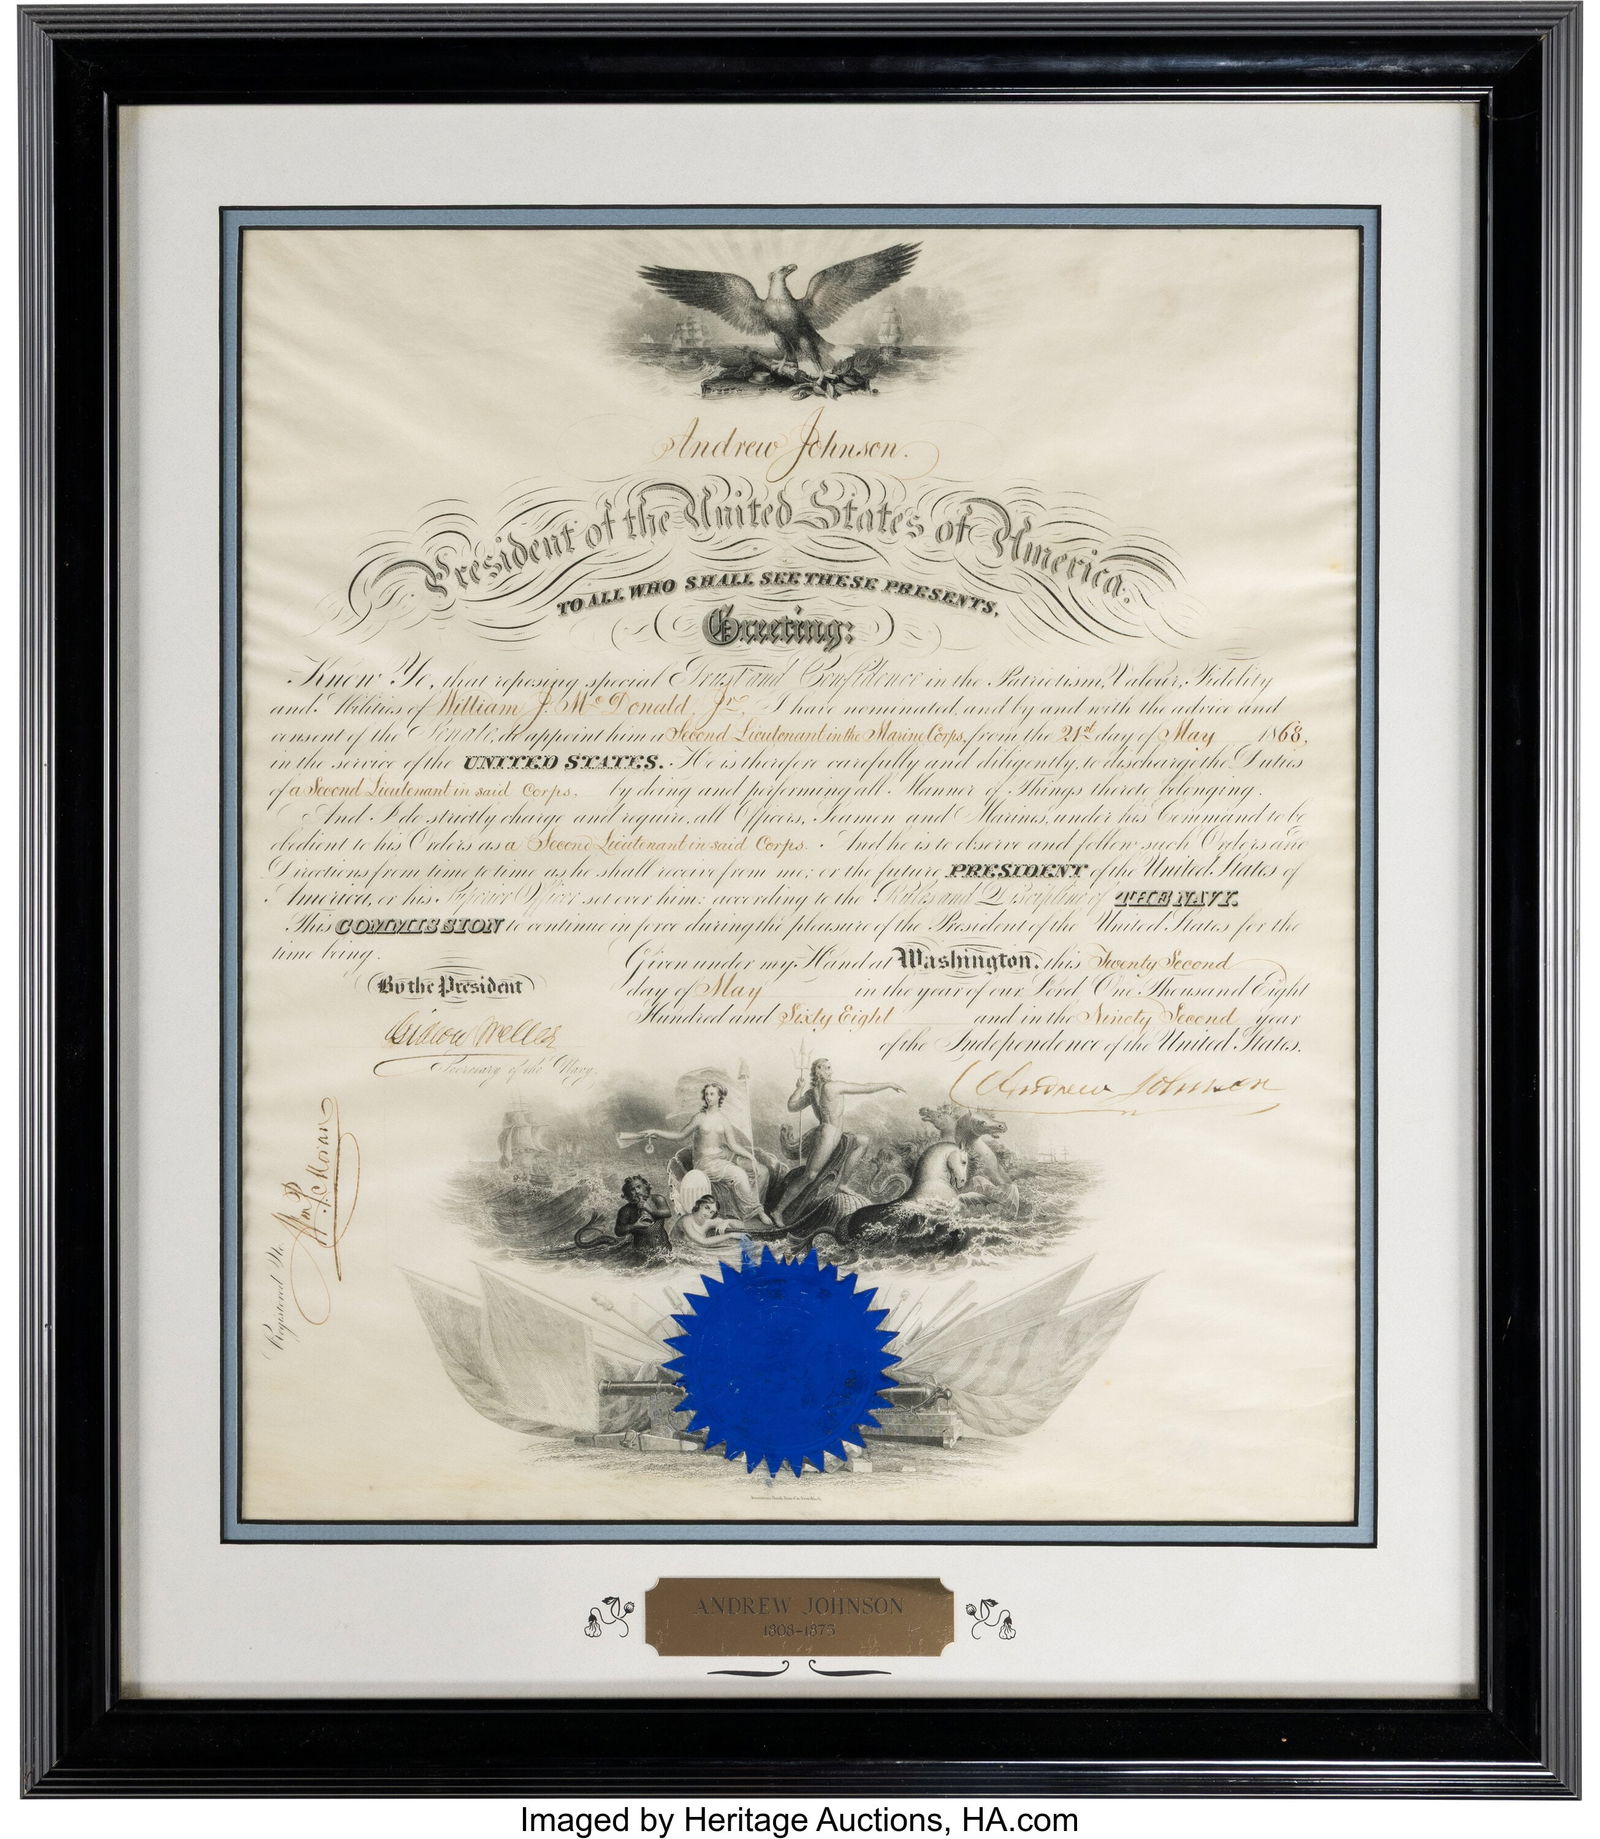 Andrew Johnson.
President of the United States of America.
TO ALL WHO SHALL SEE THESE PRESENTS,
Greeting:
Know Ye, that reposing special Trust and Confidence in the Patriotism, Valour, Fidelity
and Abilities of William J. McDonald, Jr. I have nominated, and by and with the advice and
consent of the Senate, do appoint him a Second Lieutenant in the Marine Corps, from the 21st day of May 1868,
in the service of the UNITED STATES. He is therefore carefully and diligently to discharge the Duties
of a Second Lieutenant in said Corps, by doing and performing all Manner of Things thereto belonging.
And I do strictly charge and require all Officers, Seamen and Marines, under his Command to be
obedient to his Orders as a Second Lieutenant in said Corps. And he is to observe and follow such Orders and
Directions from time to time as he shall receive from me, or the future PRESIDENT of the United States of
America, or his Superior Officer set over him, according to the Rules and Discipline of THE NAVY.
This COMMISSION to continue in force during the pleasure of the President of the United States for the
time being.
Given under my Hand at Washington, this Twenty Second
By the President
day of May in the year of our Lord, One Thousand Eight
Hundred and Sixty Eight and in the Ninety Second year
Gideon Welles
of the Independence of the United States.
Secretary of the Navy.
Andrew Johnson
Registered No.
Wm P. Moran
ANDREW JOHNSON
1808-1875
Imaged by Heritage Auctions, HA.com